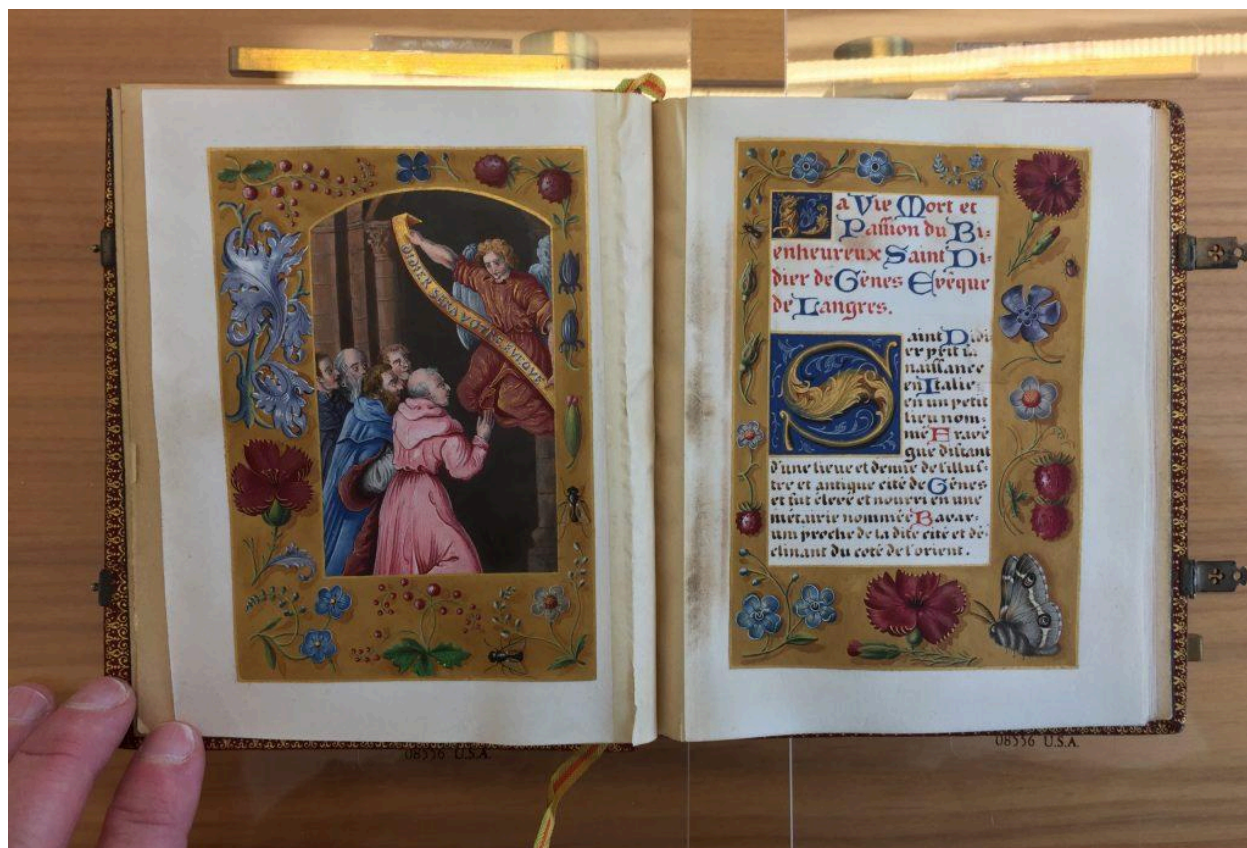 DIDIER SERA VOTRE EVEQUE
La Vie Mort et
Passion du Bi-
enheureux Saint Di-
dier de Gênes Evêque
de Langres.
Saint Didi
er prit sa
naissance
en Italie
en un petit
lieu nom-
mé Bravé
gue distant
d'une lieue et demie de l'illus-
tre et antique cité de Gênes
et fut élevé et nourri en une
métairie nommée Bavar-
um proche de la dite cité et dé-
clinant du coté de l'orient.
08556 U.S.A.
08556 U.S.A.